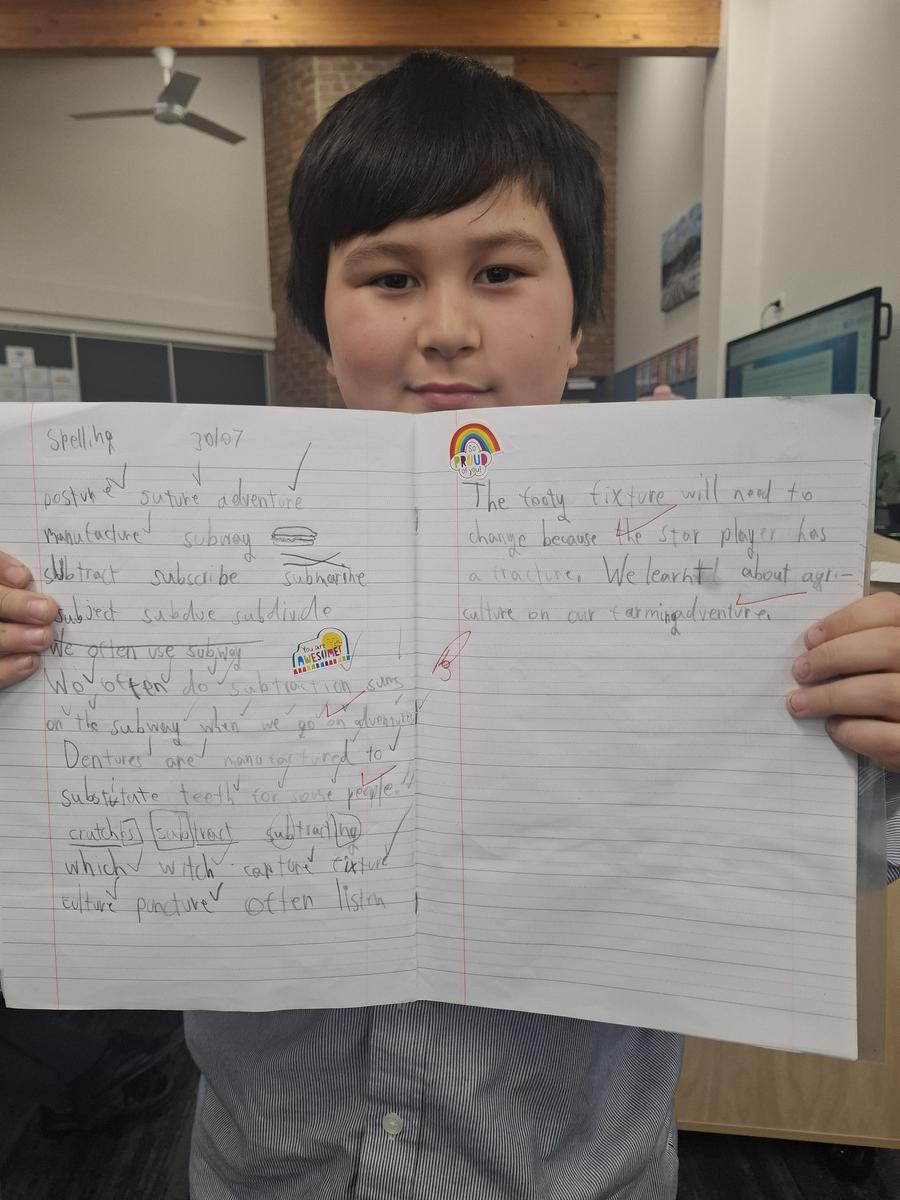 Spelling 30/07
posture suture adventure
manufacture subway
subtract subscribe submarine
subject subdue subdivide
We often use subway
You are AWESOME!
We often do subtraction sums
on the subway when we go on adventures!
Dentures are manufactured to
substitute teeth for some people.
crutches subtract subtracting
which witch capture fixture
culture puncture often listen
SO PROUD of you!
The footy fixture will need to
change because the star player has
a fracture. We learnt about agri-
culture on our farming adventure.